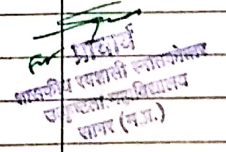 प्राचार्य
शासकीय स्वशासी स्नातकोत्तर
महाविद्यालय
सागर (म.प्र.)